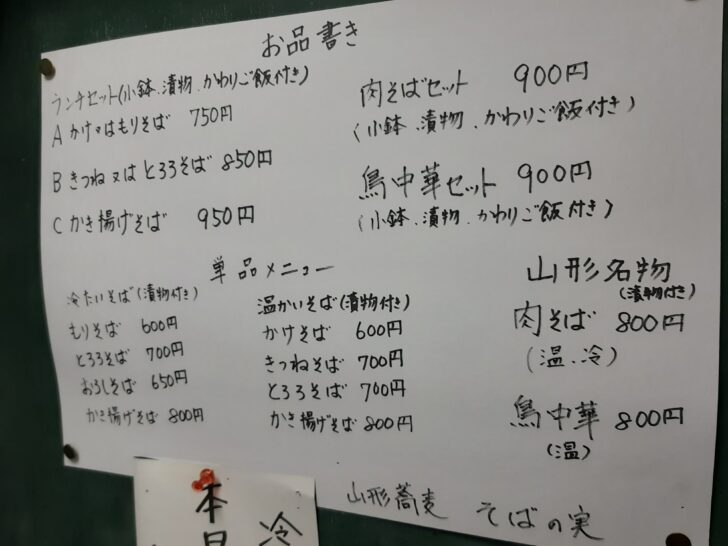 お品書き
ランチセット(小鉢、漬物、かわりご飯付き)
A かけ又はもりそば 750円
B きつね又はとろろそば 850円
C かき揚げそば 950円
肉そばセット 900円
(小鉢、漬物、かわりご飯付き)
鳥中華セット 900円
(小鉢、漬物、かわりご飯付き)
単品メニュー
冷たいそば(漬物付き)
もりそば 600円
とろろそば 700円
おろしそば 650円
かき揚げそば 800円
温かいそば(漬物付き)
かけそば 600円
きつねそば 700円
とろろそば 700円
かき揚げそば 800円
山形名物
(漬物付き)
肉そば 800円
(温、冷)
鳥中華 800円
(温)
山形蕎麦 そばの実
本日
冷